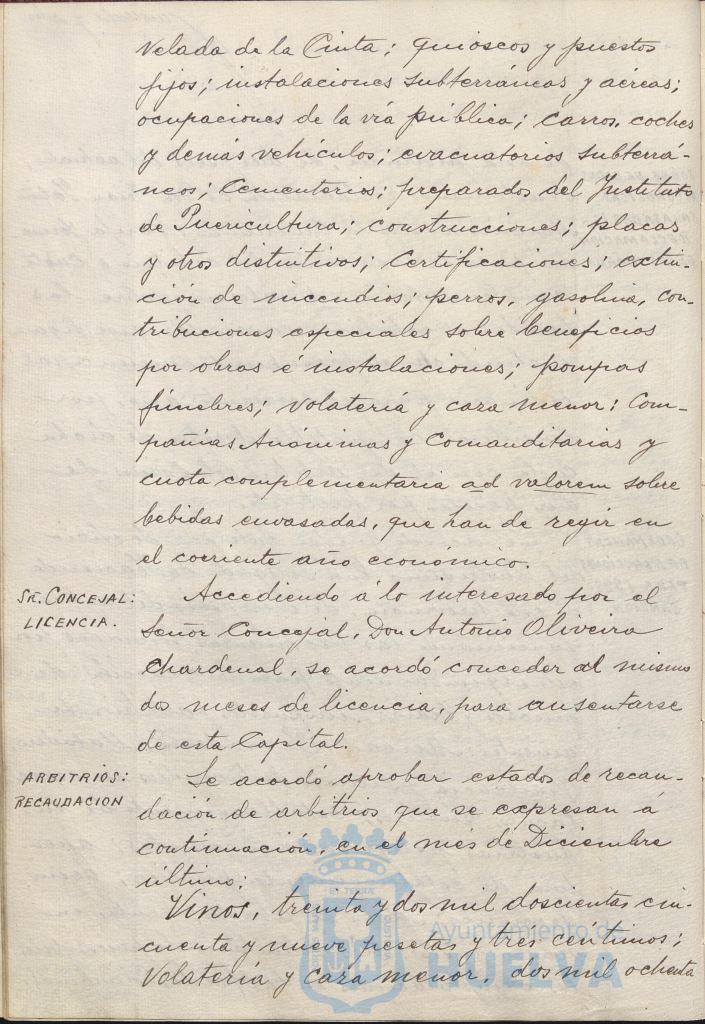 Velada de la Cinta; quioscos y puestos
fijos; instalaciones subterráneas y aéreas;
ocupaciones de la vía pública; carros, coches
y demás vehículos; evacuatorios subterrá-
neos; Cementerios; preparados del Instituto
de Puericultura; construcciones; placas
y otros distintivos; Certificaciones; extin-
ción de incendios; perros, gasolina, con-
tribuciones especiales sobre beneficios
por obras é instalaciones; pompas
fúnebres; volatería y caza menor; Com-
pañías Anónimas y Comanditarias y
cuota complementaria ad valorem sobre
bebidas envasadas, que han de regir en
el corriente año económico.
SR. CONCEJAL:
LICENCIA.
Accediendo á lo interesado por el
Señor Concejal, Don Antonio Oliveira
Chardenal, se acordó conceder al mismo
dos meses de licencia, para ausentarse
de esta Capital.
ARBITRIOS:
RECAUDACION
Se acordó aprobar estados de recau-
dación de arbitrios que se expresan á
continuación, en el mes de Diciembre
último:
Vinos, treinta y dos mil doscientas cin-
cuenta y nueve pesetas y tres céntimos;
Volatería y caza menor, dos mil ochenta
Ayuntamiento de
HUELVA